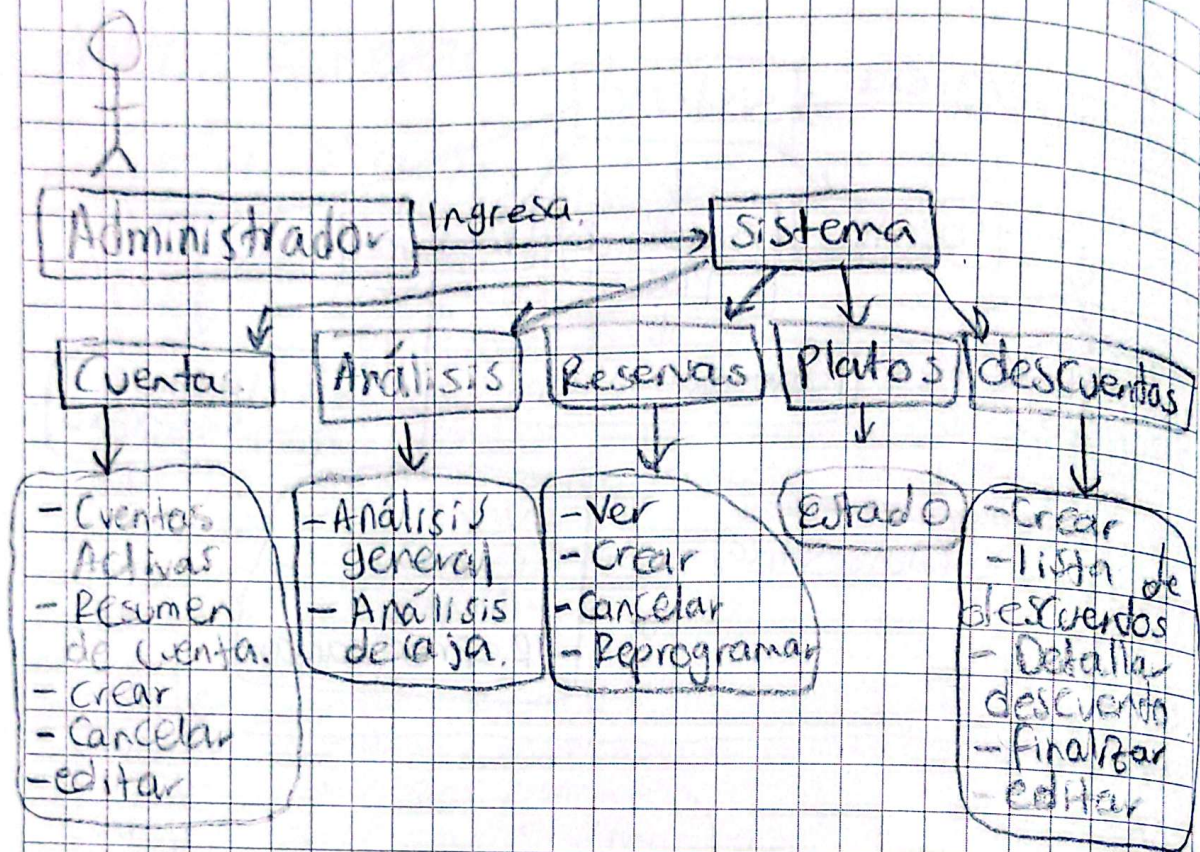 Administrador
Ingresa.
Sistema
Cuenta
Análisis
Reservas
Platos
descuentos
- Cuentas
Activas
- Resumen
de cuenta.
- Crear
- Cancelar
- editar
- Análisis
general
- Análisis
de caja.
- Ver
- Crear
- Cancelar
- Reprogramar
Estado
- Crear
- lista de
descuentos
- Detallar
descuento
- Finalizar
- editar